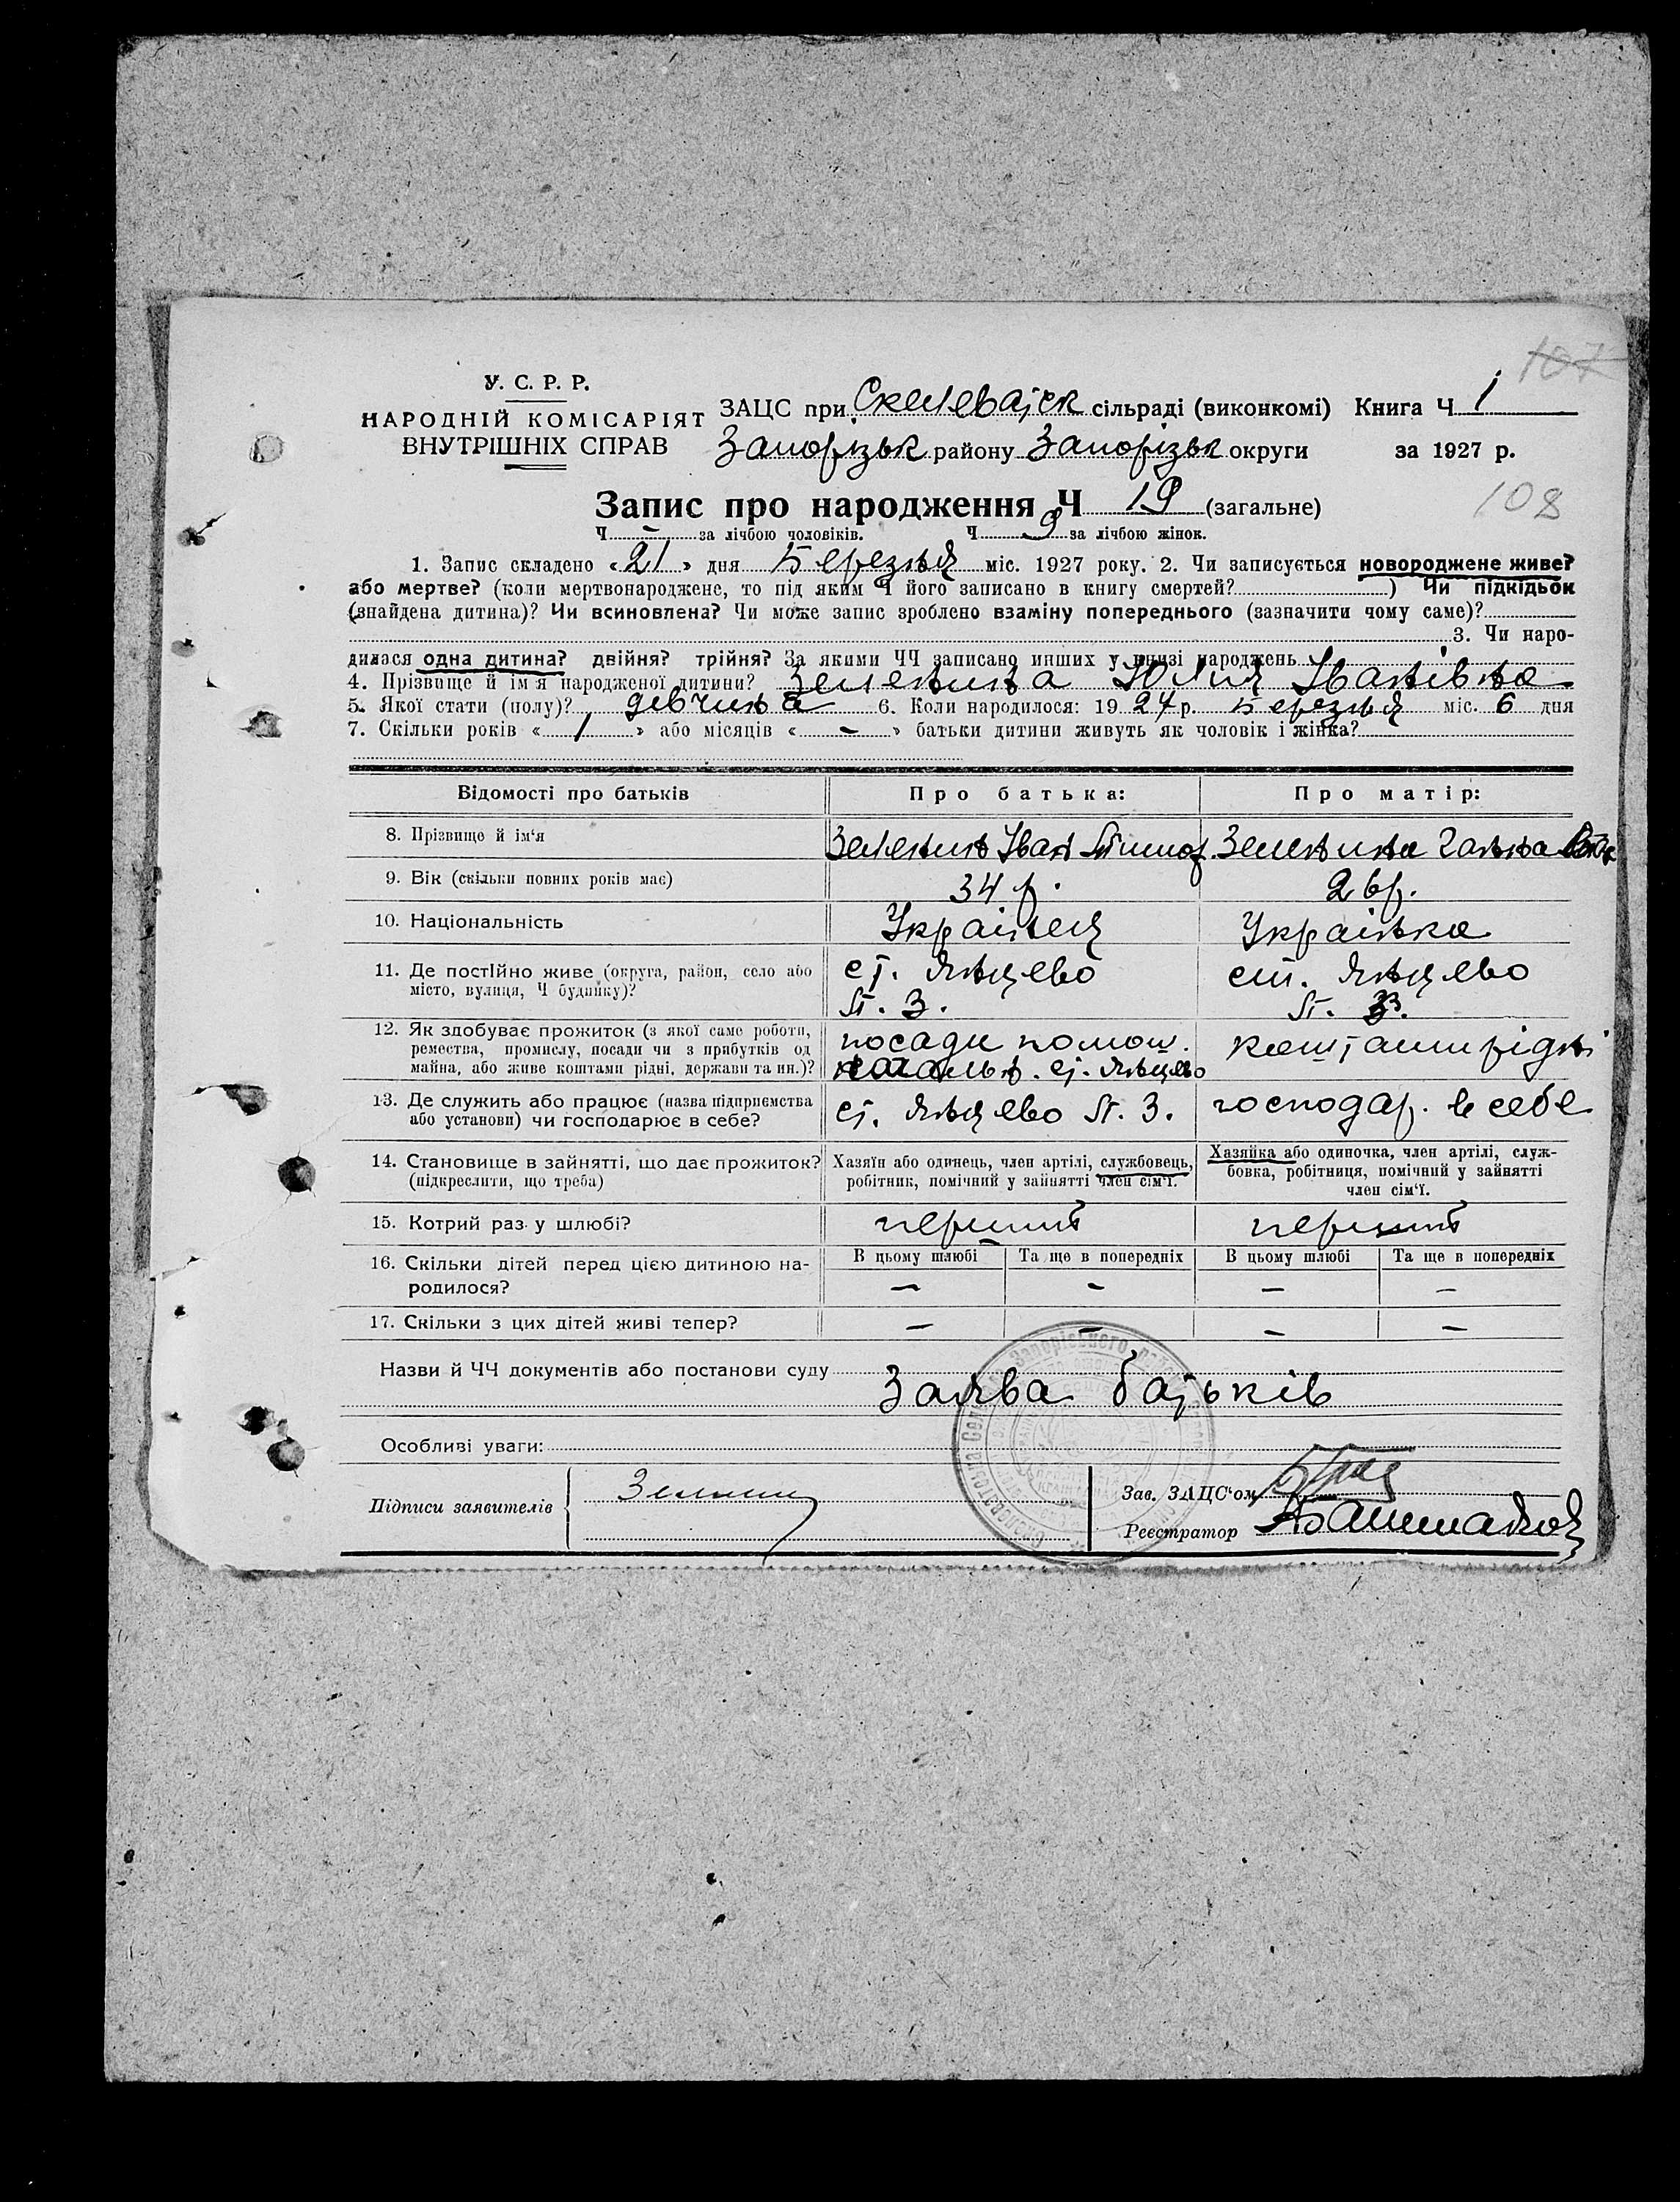 107
У. С. Р. Р.
НАРОДНІЙ КОМІСАРІЯТ
ВНУТРІШНІХ СПРАВ
ЗАЦС при Скелеват‍ск сільраді (виконкомі) Книга Ч 1
Запоріз‍ьк району Запорізьк округи за 1927 р.
108
Запис про народження Ч 19 (загальне)
Ч - за лічбою чоловіків. Ч 9 за лічбою жінок.
1. Запис складено «21» дня Березня міс. 1927 року. 2. Чи записується новороджене живе?
або мертве? (коли мертвонароджене, то під яким Ч його записано в книгу смертей? ) Чи підкідьок
(знайдена дитина)? Чи всиновлена? Чи може запис зроблено взаміну попереднього (зазначити чому саме)?
3. Чи наро-
дилася одна дитина? двійня? трійня? За якими ЧЧ записано инших у книзі народжень
4. Прізвище й ім'я народженої дитини? Зеленина Юлия Іванівна
5. Якої стати (полу)? девчина 6. Коли народилося: 1927 р. Березня міс. 6 дня
7. Скільки років «1» або місяців « - » батьки дитини живуть як чоловік і жінка?
Відомості про батьків Про батька: Про матір:
8. Прізвище й ім'я Зеленин Іван Зеленина Ганна
9. Вік (скільки повних років має) 34 р. 26 р.
10. Національність Українец Українка
11. Де постійно живе (округа, район, село або ст. Янцево ст. Янцево
місто, вулиця, Ч будинку)? Кт. З. Кт. З.
12. Як здобуває прожиток (з якої саме роботи, посади помош. коштами рідні
ремества, промислу, посади чи з прибутків од
майна, або живе коштами рідні, держави та ин.)? начальн. ст. Янцево
13. Де служить або працює (назва підприємства ст. Янцево Кт. З. господар. в себе
або установи) чи господарює в себе?
14. Становище в зайнятті, що дає прожиток? Хазяїн або одинець, член артілі, службовець, Хазяйка або одиночка, член артілі, служ-
(підкреслити, що треба) робітник, помічний у зайнятті член сім'ї. бовка, робітниця, помічний у зайнятті
член сім'ї.
15. Котрий раз у шлюбі? перший перший
16. Скільки дітей перед цією дитиною на- В цьому шлюбі Та ще в попередніх В цьому шлюбі Та ще в попередніх
родилося? - - - -
17. Скільки з цих дітей живі тепер? - - - -
Назви й ЧЧ документів або постанови суду
Заява батьків
Особливі уваги:
Підписи заявителів Зеленин
Зав. ЗАЦС'ом
Реєстратор